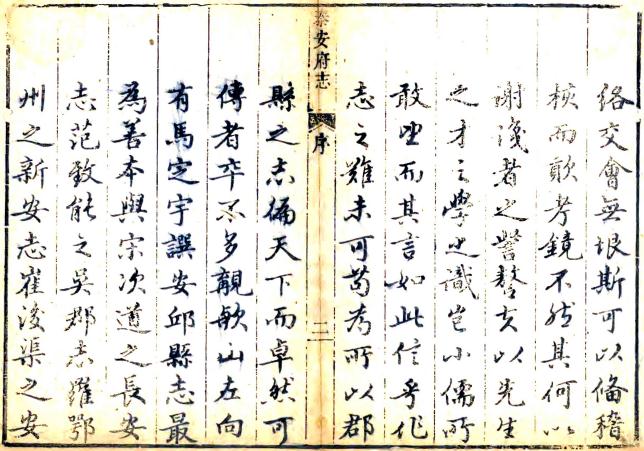 絡交會無垠斯可以備稽
核而考鏡不然其何以
謝淺者之訾謷夫以先生
之才之學之識豈小儒所
敢望而其言如此信乎作
志之難未可苟為所以郡
泰安府志
序
二
縣之志徧天下而卓然可
傳者卒不多覯歟山左向
有馬定宇譔安邱縣志最
為善本與宋次道之長安
志范致能之吳郡志羅鄂
州之新安志崔後渠之安